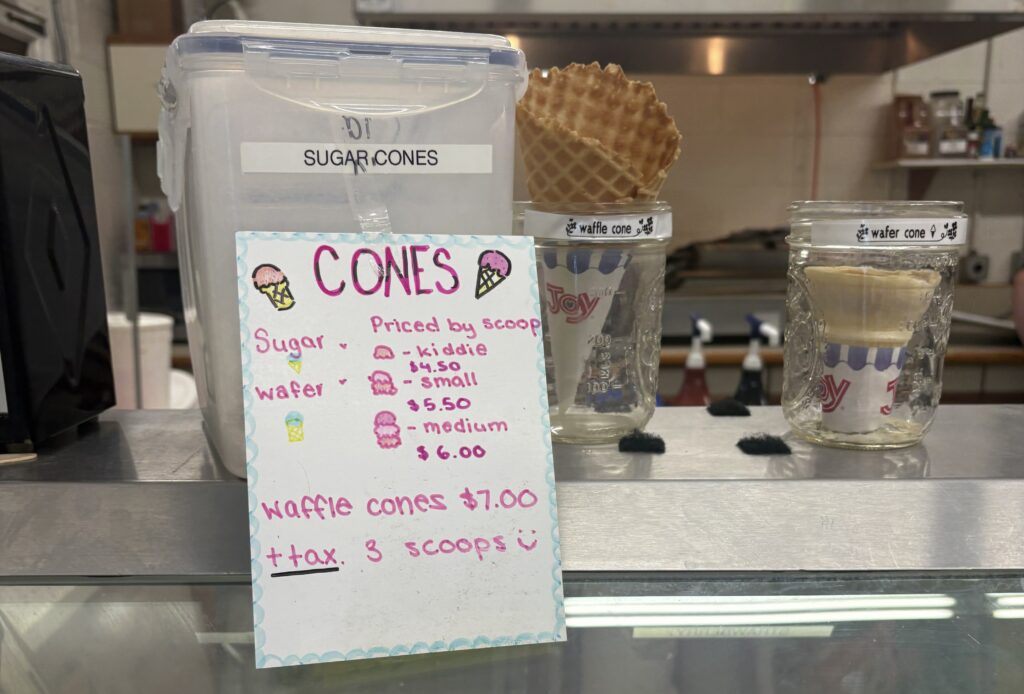 SUGAR CONES
waffle cone
wafer cone
Joy
JOY
J
CONES
Sugar
Priced by scoop
- kiddie
$4.50
wafer
- small
$5.50
- medium
$6.00
waffle cones $7.00
+tax. 3 scoops